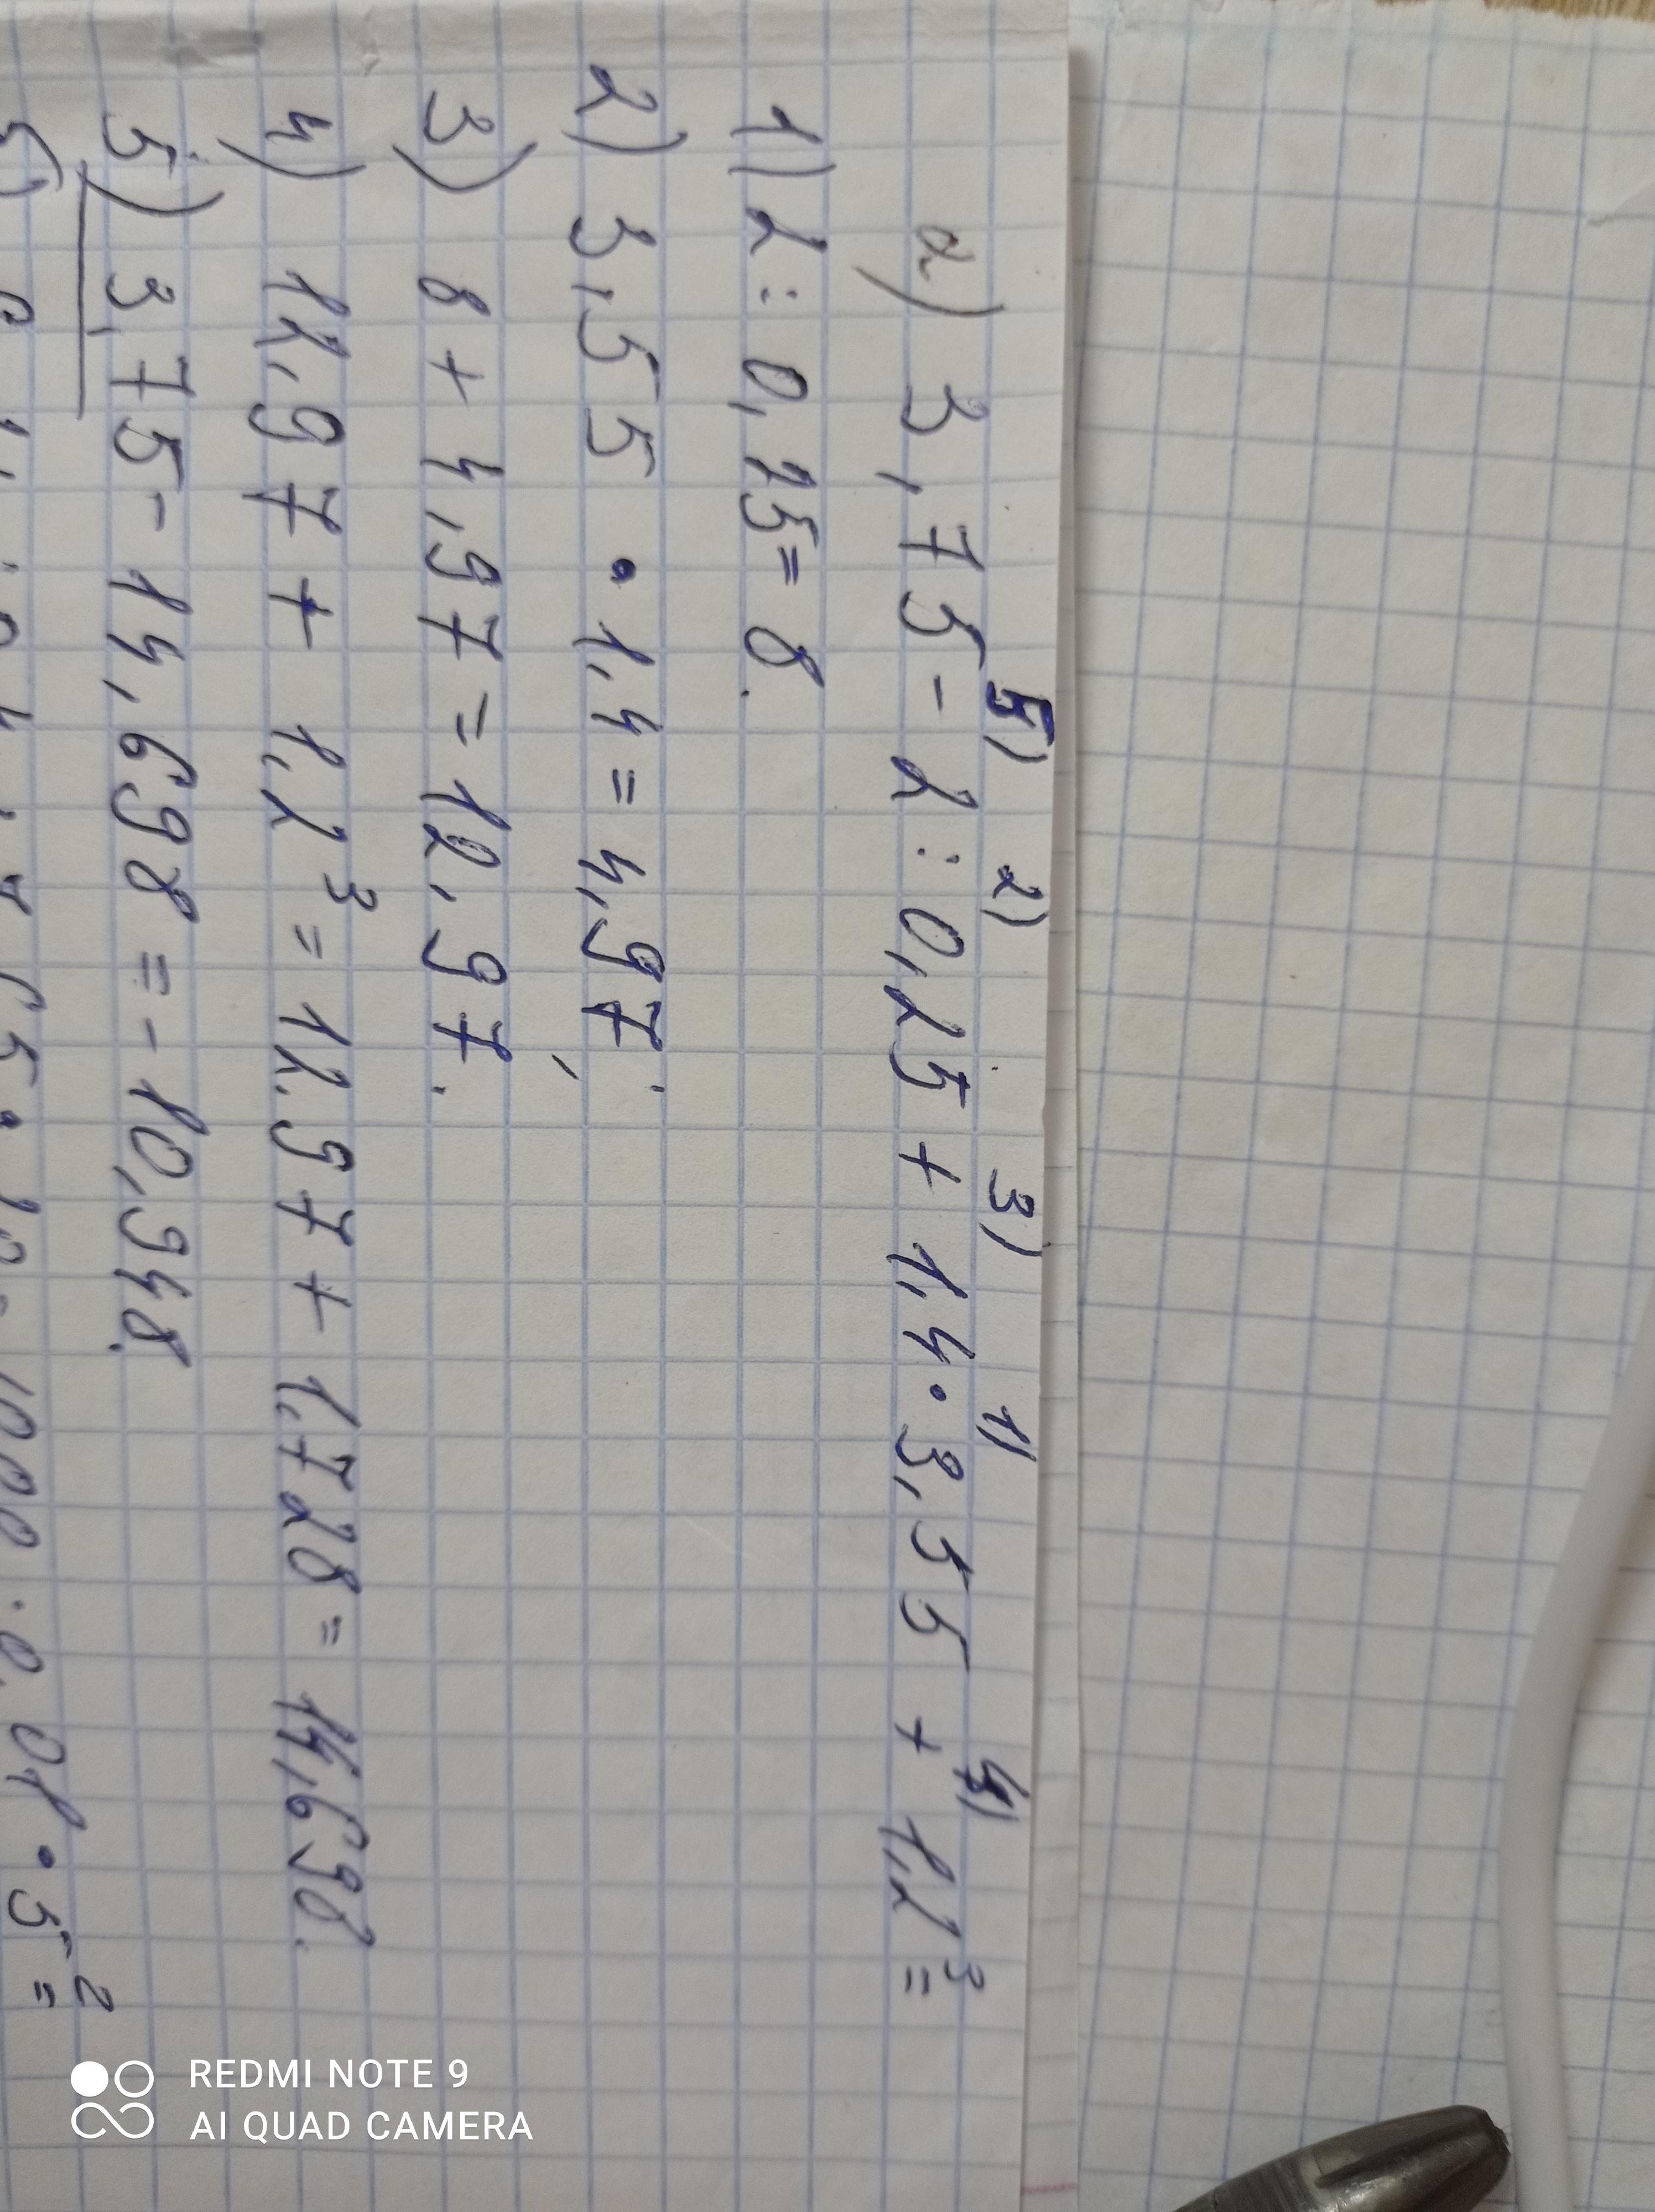 5) 2) 3) 1) 4)
a) 3,75 - 2 : 0,25 + 1,4 · 3,55 + 1,2³ =
1) 2 : 0,25 = 8.
2) 3,55 · 1,4 = 4,97;
3) 8 + 4,97 = 12,97.
4) 12,97 + 1,2³ = 12,97 + 1,728 = 14,698.
5) 3,75 - 14,698 = - 10,948.
1000 · 0,01 · 5² =
REDMI NOTE 9
AI QUAD CAMERA